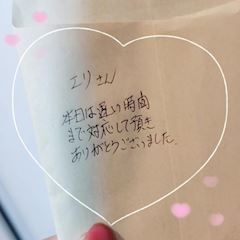 エリさん
本日は遅い時間
まで対応して頂き
ありがとうございました。